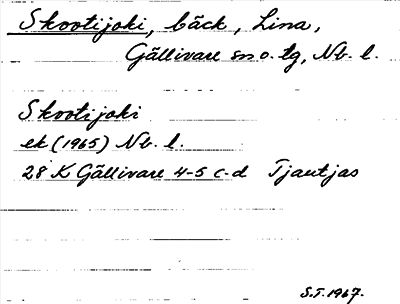 Skootijoki, bäck, Lina,
Gällivare sn o. tg, Nb. l.
Skootijoki
ek (1965) Nb. l.
28 K Gällivare 4-5 c-d Tjautjas
S.T. 1967.